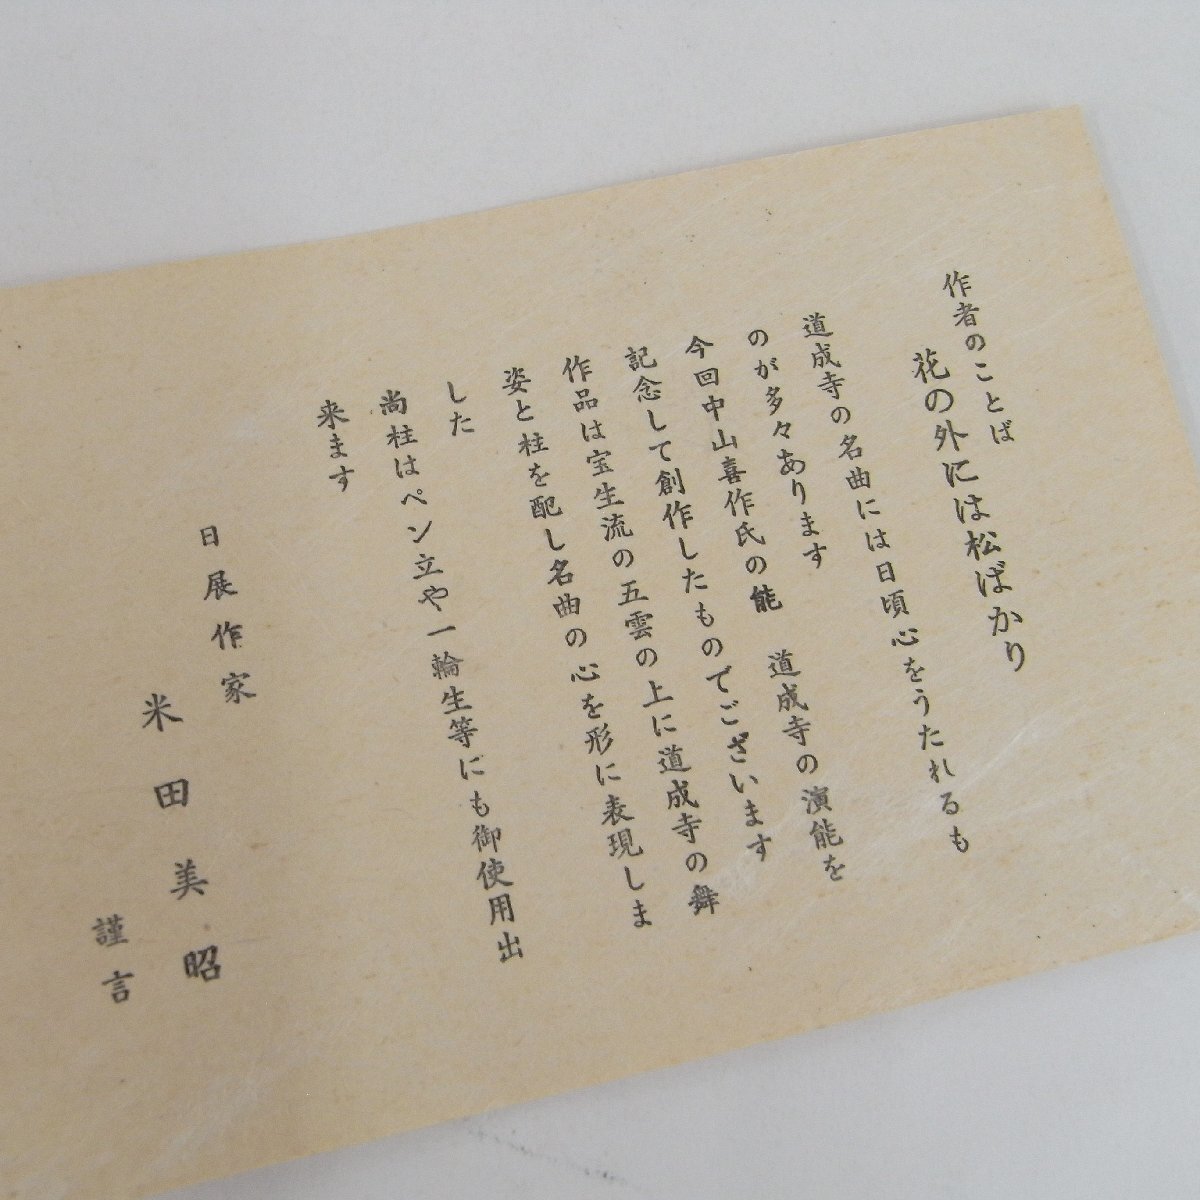 作者のことば
花の外には松ばかり
道成寺の名曲には日頃心をうたれるも
のが多々あります
今回中山喜作氏の能　道成寺の演能を
記念して創作したものでございます
作品は宝生流の五雲の上に道成寺の舞
姿と柱を配し名曲の心を形に表現しま
した
尚柱はペン立や一輪生等にも御使用出
来ます
日展作家
米田美昭
謹言